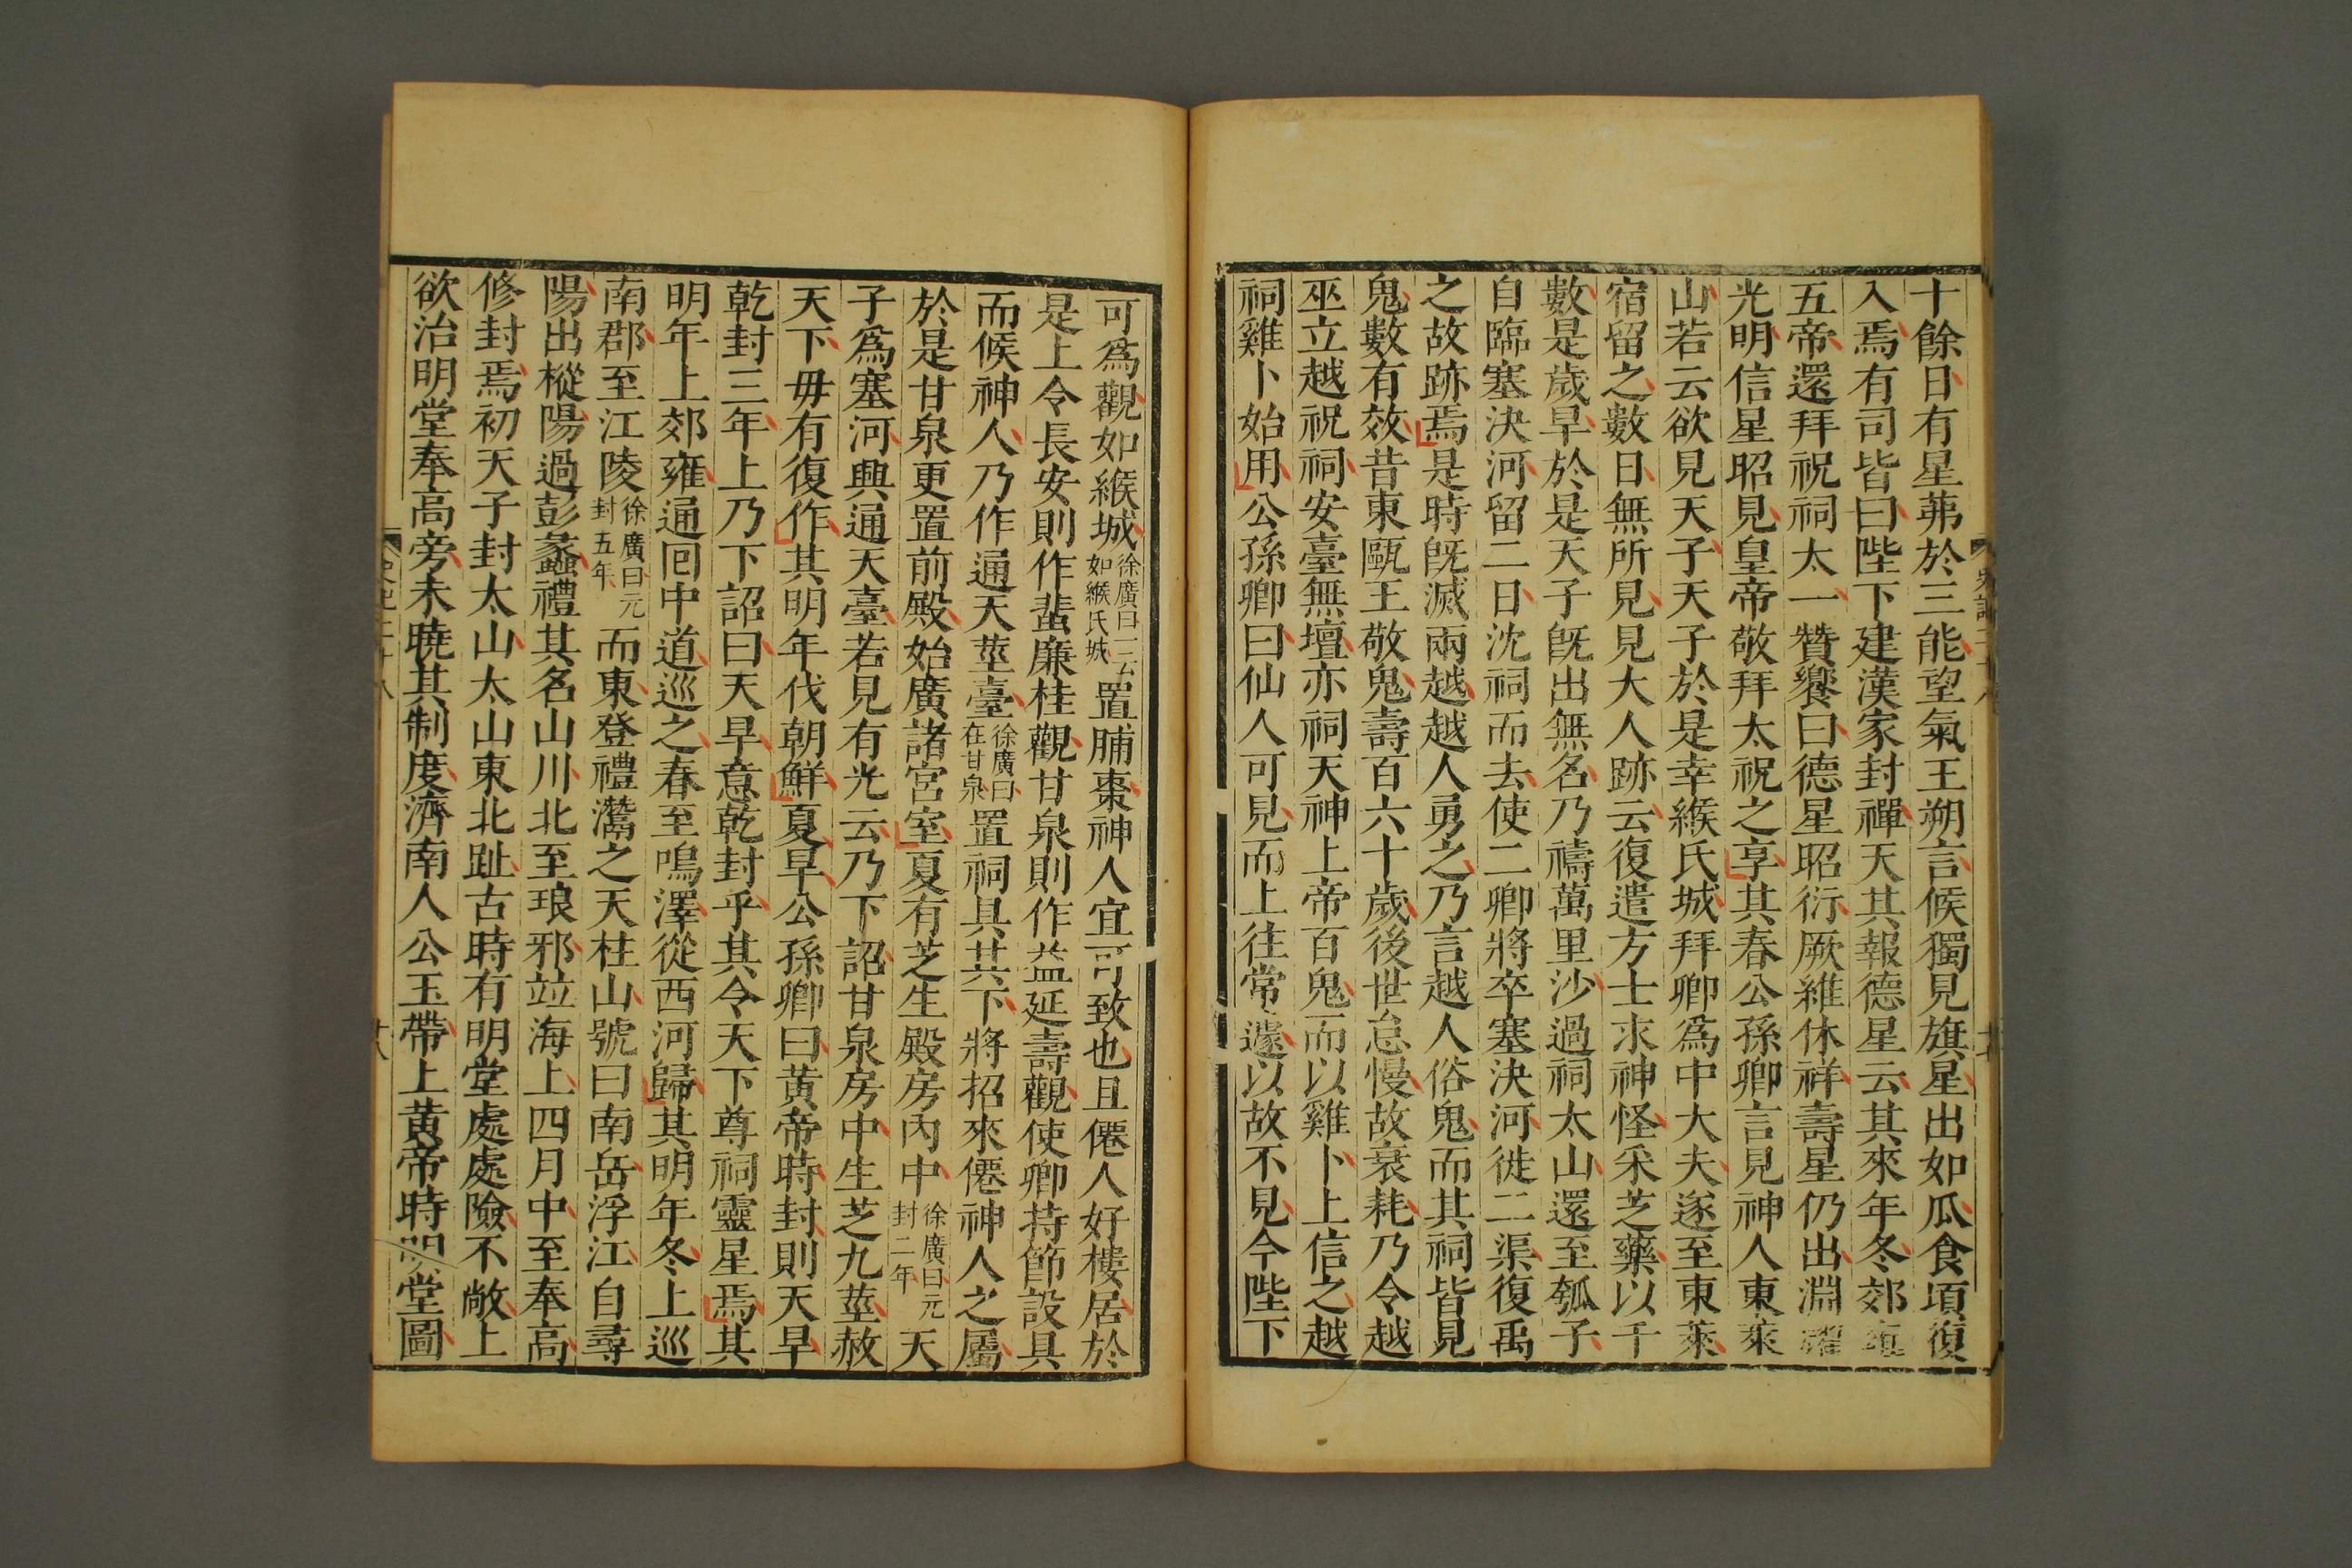 十餘日有星茀於三能望氣王朔言候獨見旗星出如瓜食頃復
入焉有司皆曰陛下建漢家封禪天其報德星云其來年冬郊雍
五帝還拜祝祠太一贊饗曰德星昭衍厥維休祥壽星仍出淵耀
光明信星昭見皇帝敬拜太祝之享其春公孫卿言見神人東萊
山若云欲見天子天子於是幸緱氏城拜卿爲中大夫遂至東萊
宿留之數日無所見見大人跡云復遣方士求神怪采芝藥以千
數是歲旱於是天子旣出無名乃禱萬里沙過祠太山還至瓠子
自臨塞決河留二日沈祠而去使二卿將卒塞決河徙二渠復禹
之故跡焉是時旣滅兩越越人勇之乃言越人俗鬼而其祠皆見
鬼數有效昔東甌王敬鬼壽百六十歲後世怠慢故衰耗乃令越
巫立越祝祠安臺無壇亦祠天神上帝百鬼而以雞卜上信之越
祠雞卜始用公孫卿曰仙人可見而上往常遽以故不見今陛下
可爲觀如緱城徐廣曰一云如緱氏城置脯棗神人宜可致也且僊人好樓居於
是上令長安則作蜚廉桂觀甘泉則作益延壽觀使卿持節設具
而候神人乃作通天莖臺徐廣曰在甘泉置祠具其下將招來僊神人之屬
於是甘泉更置前殿始廣諸宮室夏有芝生殿房內中徐廣曰元封二年天
子爲塞河興通天臺若見有光云乃下詔甘泉房中生芝九莖赦
天下毋有復作其明年伐朝鮮夏旱公孫卿曰黄帝時封則天旱
乾封三年上乃下詔曰天旱意乾封乎其令天下尊祠靈星焉其
明年上郊雍通回中道巡之春至鳴澤從西河歸其明年冬上巡
南郡至江陵徐廣曰元封五年而東登禮灊之天柱山號曰南岳浮江自尋
陽出樅陽過彭蠡禮其名山川北至琅邪竝海上四月中至奉高
修封焉初天子封太山太山東北趾古時有明堂處處險不敞上
欲治明堂奉高旁未曉其制度濟南人公玉帶上黄帝時明堂圖